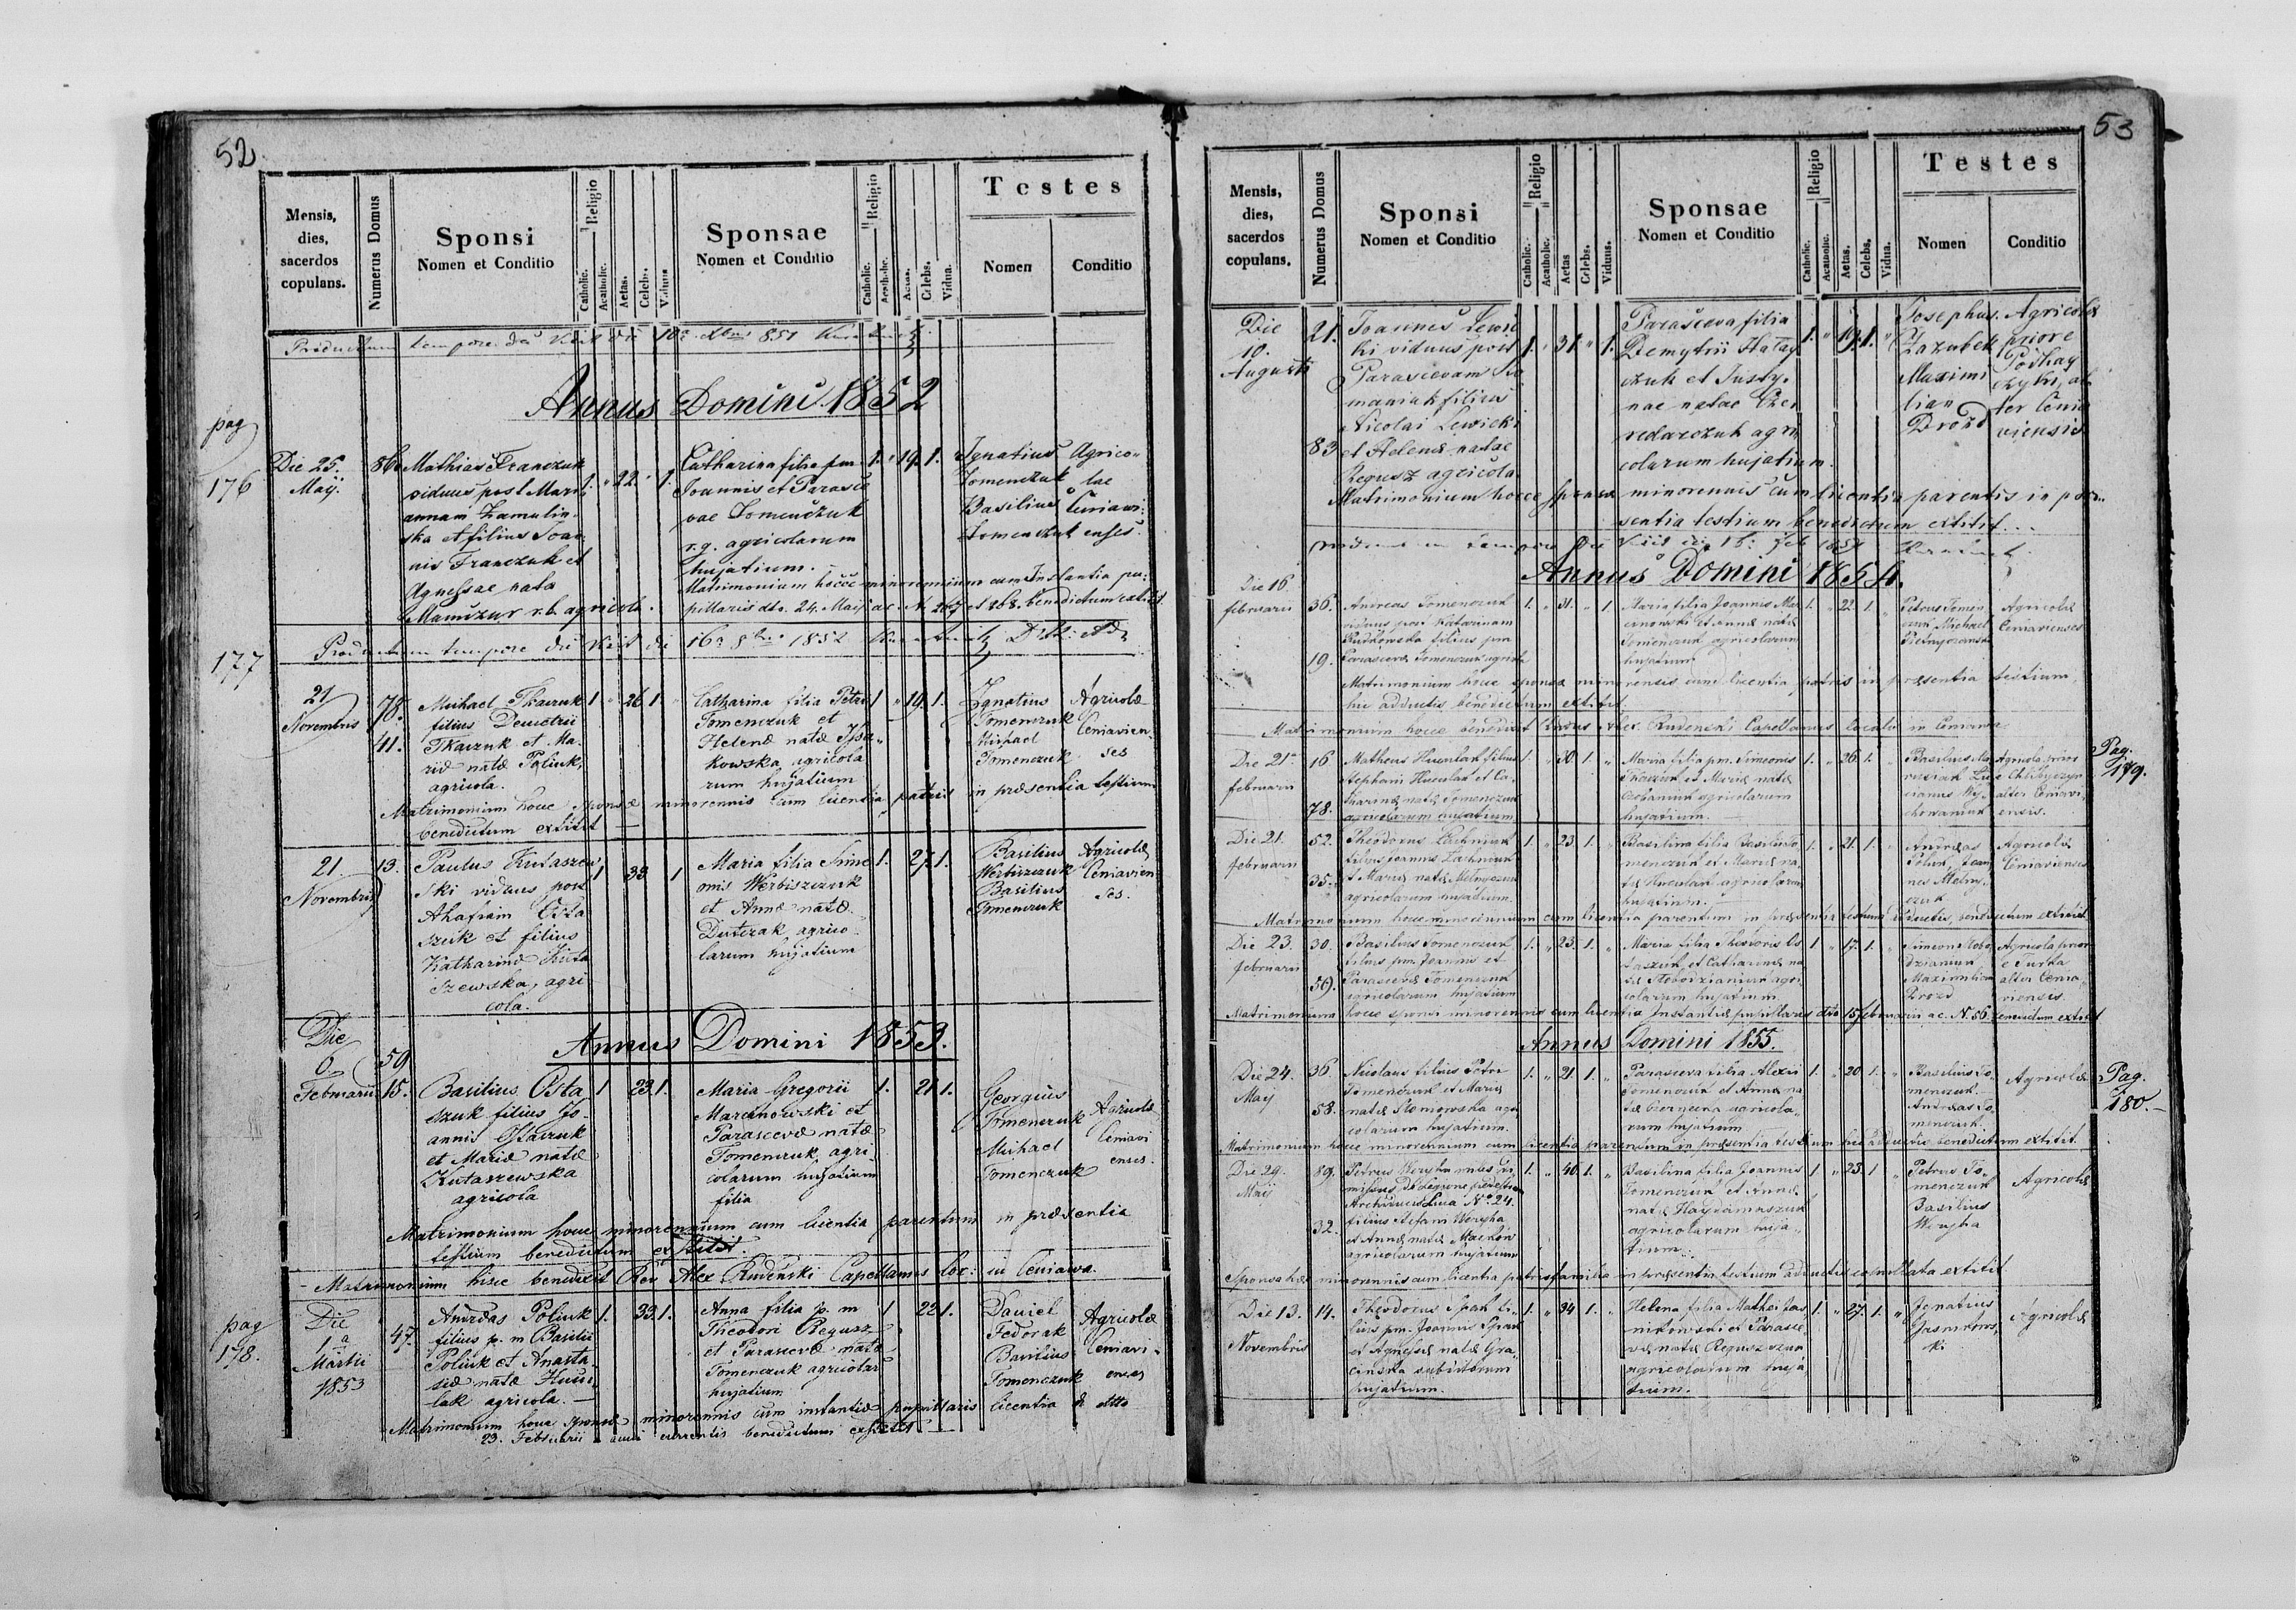 52
Mensis,
dies,
sacerdos
copulans.
Numerus Domus
Sponsi
Nomen et Conditio
Religio
Catholic.
Acatholic.
Aetas.
Celebs.
Viduus
Sponsae
Nomen et Conditio
Religio
Catholic.
Acatholic.
Aetas.
Celebs.
Vidua.
Testes
Nomen
Conditio
Annus Domini 1852
pag
176
Die 25.
Maÿ.
86
Mathias Franczuk
viduus post Mari
annam
ska et filius Joan
nis Franczuk et
Agnessae nata
r.b. agricola.
1. " 22. " 1.
Catharina filia pm.
Joannis et Parasce
vae Tomenczuk
r.g. agricolarum
hujatium.
1. " 19. 1.
Ignatius
Tomenczuk
Basilius
Tomenczuk
Agrico-
lae
Ceniawi:
enses.
Matrimonium hocce minorennium cum Instantia pu:
pillaris dto. 24. Maÿ ac. N. 267 et 268. benedictum extitit
177
21
Novembris
78.
41.
Michael Tkaczuk
filius Demetrii
Tkaczuk et Ma-
riæ natæ Poliuk,
agricola.
1 " 26 1. "
Catharina filia Petri
Tomenczuk et
Helenæ natæ
kowska agricola
rum hujatium
1 " 19. 1.
Ignatius
Tomenczuk
Michael
Tomenczuk
Agricolæ
Ceniavien
ses
Matrimonium hocce sponsæ minorennis cum licentia patris in præsentia testium
benedictum extitit
21.
Novembris
13.
Paulus Kutaszew
ski viduus post
Ahafiam Osta
szuk et filius
Katharinæ Kuta
szewska, agri
cola.
1 33 1
Maria filia Sime
onis Werbiszczuk
et Annæ natæ
Dutczak agrico-
larum hujatium
1. 27. 1.
Basilius
Werbiszczuk
Basilius
Tomenczuk
Agricolæ
Ceniavien
ses.
Annus Domini 1853.
Die
6.
Februarii
59
15.
Basilius Osta
szuk filius Jo-
annis Ostaszuk
et Mariæ natæ
Kutaszewska
agricola
1 23. 1.
Maria Gregorii
Marianowski et
Parascevæ natæ
Tomenczuk agri-
colarum hujatium
filia
1. 21 1.
Georgius
Tomenczuk
Michael
Tomenczuk
Agricolæ
Ceniavi
enses.
Matrimonium hocce minorennium cum licentia parentum in præsentia
testium benedictum extitit.
Matrimonium hicce benedixit Rev Alex Rudenski Capellanus loc: in Ceniawa.
pag
178.
Die
1a
Martii
1853
47.
Andreas Poliuk
filius p. m Basilii
Poliuk et Anasta-
siæ natæ Hucu
lak agricola.
1. 33. 1.
Anna filia p. m
Theodori Regusz
et Parascevæ natæ
Tomenczuk agricolar
hujatium
1 22 1.
Daniel
Fedorak
Basilius
Tomenczuk
Agricolæ
Ceniavi-
enses
Matrimonium hocce sponsæ minorennis cum instantiæ pupillaris licentia d dtto
23. Februarii anni currentis benedictum extitit
53
Mensis,
dies,
sacerdos
copulans.
Numerus Domus
Sponsi
Nomen et Conditio
Religio
Catholic.
Acatholic.
Aetas
Celebs.
Viduus.
Sponsae
Nomen et Conditio
Religio
Catholic.
Acatholic.
Aetas.
Celebs.
Vidua.
Testes
Nomen
Conditio
Die
10.
Augusti
21.
83
Joannes Lewic
ki viduus post
Parascevam
maniuk filius
Nicolai Lewicki
et Helenæ natae
Regusz agricola.
1. " 31. " 1.
Parasceva filia
Demytrii Hatay
czuk et Justy-
nae natae Che
redarczuk agri
colarum hujatium.
1. " 19. 1. "
Josephus
Zazubek
Maximi
lian
Drozd
Agricolæ
priore
Podhay
czyki, al
ter Cenia
viensis
Matrimonium hocce sponsæ minorennis cum licentia parentis in præ-
sentia testium benedictum extitit.
Annus Domini 1854.
Die 16
februarii
36.
19.
Andreas Tomenczuk
viduus post Katarinam
Rudkowska filius pm
Parascevæ Tomenczuk agricola
1. " 31. " 1
Maria filia Joannis Mar
cinowski et Annæ natæ
Tomenczuk agricolarum
hujatium
1. " 22. 1. "
Petrus Tomen
czuk Michael
Agricolæ
Ceniavienses
Matrimonium hocce sponsæ minorennis cum licentia patris in præsentia testium
huc adductis benedictum extitit.
Matrimonium hocce benedixit Rndus Alex. Rudenski Capellanus localis in Ceniawa
Die 21a
februarii
16
78.
Matheus Huculak filius
Stephani Huculak et Ca-
tharinæ natæ Tomenczuk
agricolarum hujatium
1. " 30. 1. "
Maria filia pm. Simeonis
Tkaczuk et Mariæ natæ
agricolarum
hujatium.
1. " 26. 1. "
Basilius Ma
rusiak Lu
cianus Wy
Agricola prior
e Chlibyczyn
alter Ceniavi
ensis.
Pag.
179.
Die 21.
februarii
52.
35.
Theodorus Lachniuk
filius Joannis Lachniuk
et Mariæ natæ Melnyczuk
agricolarum hujatium.
1. " 23. 1. "
Basilina filia Basilii To
menczuk et Mariæ na
tæ Huculak agricolarum
hujatium.
1. " 21. 1. "
Andreas
Poliuk, Joan
nes Melny-
czuk
Agricolæ
Ceniavienses
Matrimonium hocce minorennium cum licentia parentum in præsentia testium adductis, benedictum extitit.
Die 23.
februarii
30.
59.
Basilius Tomenczuk
filius pm. Joannis et
Parascevæ Tomenczuk
agricolarum hujatium
1. " 23. 1. "
Maria filia Theodoris Os
taszuk et Catharinæ na
tæ Slobodzianiuk agri
colarum hujatium.
1 " 17. 1. "
Simeon Slobo
dzianiuk,
Maximilian
Drozd
Agricola prior
e Turka
alter Cenia
viensis.
Matrimonium hocce sponsi minorennis cum licentia Instantiæ pupillaris dtto 15 februarii ac. N. 56. benedictum extitit
Annus Domini 1855.
Die 24.
Maÿ
36.
58.
Nicolaus filius Petri
Tomenczuk et Mariæ
natæ Slomowska agri
colarum hujatium.
1. " 21. 1. "
Parasceva filia Alexii
Tomenczuk et Annæ na
tæ agricola-
rum hujatium
1. " 20 1. "
Basilius To-
menczuk.
Andreas To-
menczuk.
Agricolæ
Pag.
180.
Matrimonium hocce minorennium cum licentia parentum in præsentia testium huc adductis benedictum extitit.
Die 29.
Maij
89.
32.
Petrus Woryha miles di-
missus de Legione pedestri
Archiducis N° 24.
filius Stefani Woryha
et Annæ natæ Mackow
agricolarum hujatium
1. " 40. 1. "
Basilina filia Joannis
Tomenczuk et Annæ
natæ
agricolarum huja-
tium.
1 " 23. 1 "
Petrus To-
menczuk
Basilius
Woryha
Agricolæ
Sponsa hæc minorennis cum licentia patrisfamilia in præsentia testium adductis copulata extitit
Die 13.
Novembris
14.
Theodorus Spak fi-
lius pm. Joannis Spak
et Agnesiæ natæ Gra-
subditorum
hujatium.
1. " 34 1. "
Helena filia Mathei Jas
nikowski et Parasce
væ natæ Regusz
agricolarum huja
tium.
1. " 27. 1. "
Ignatius
ki
Agricolæ